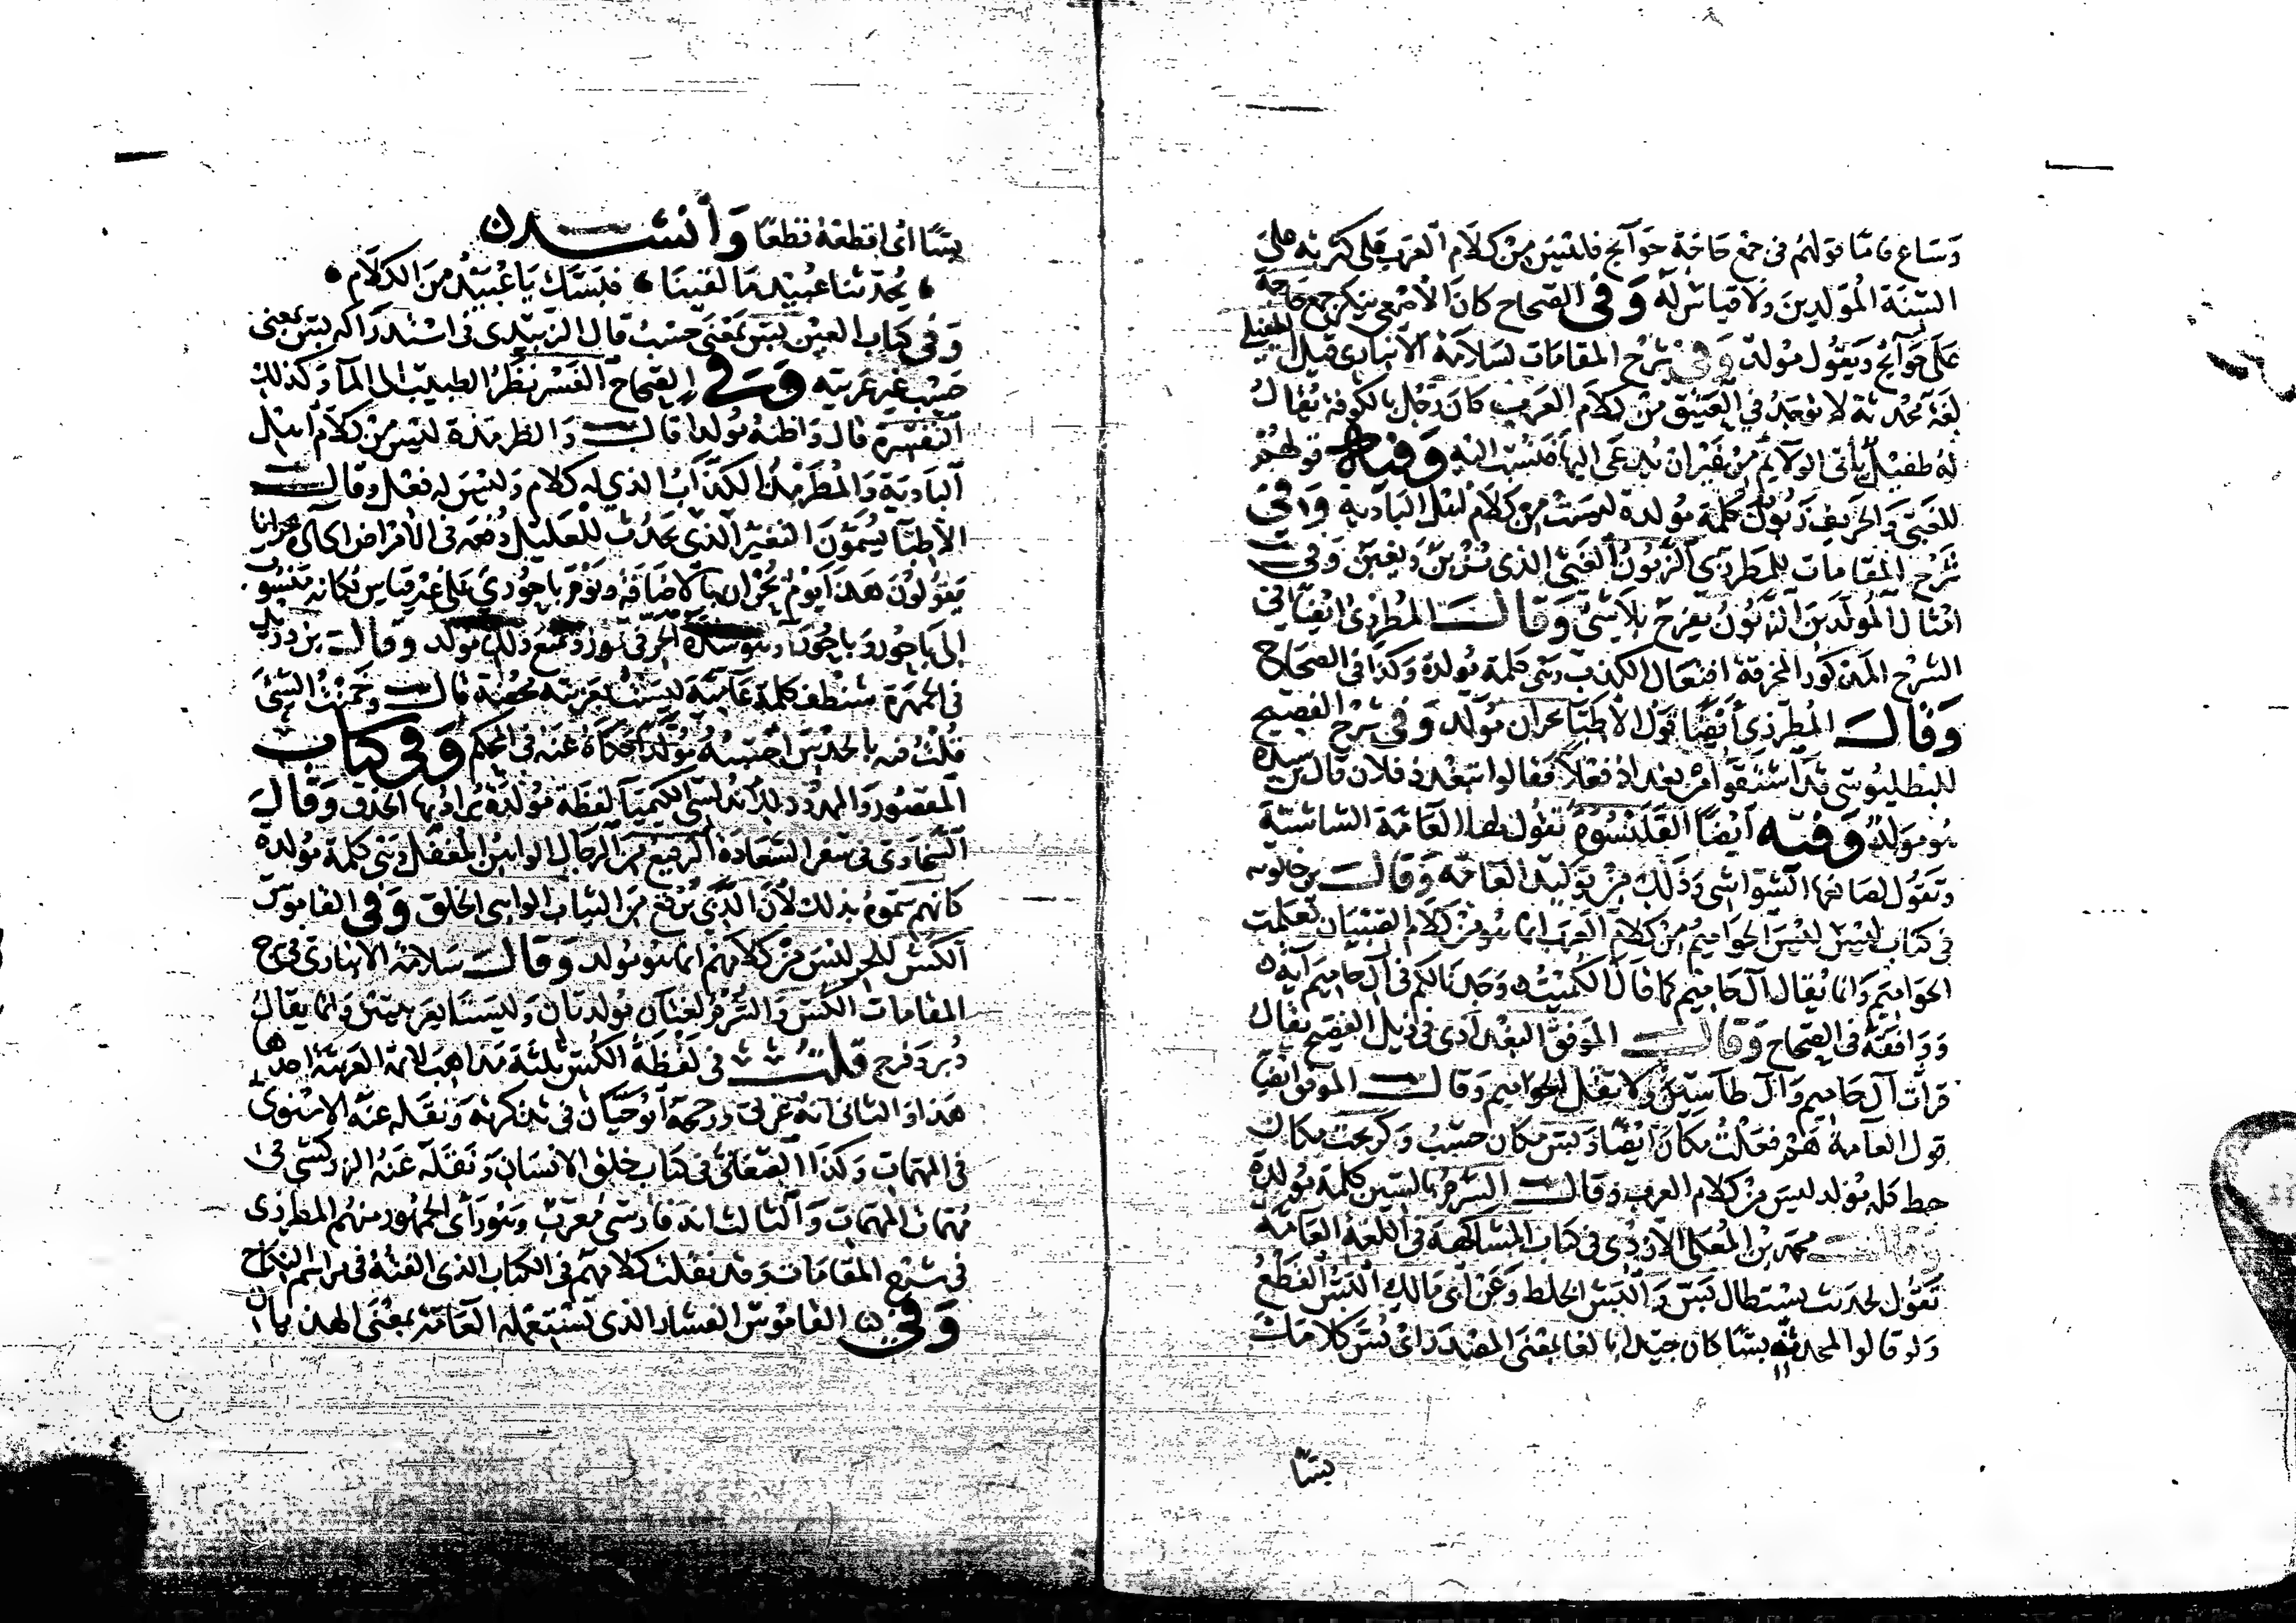 وساع فاما قولهم في جمع حاجة حوآئج فليس من كلام العرب على كثرته على
السنة المولدين ولا قياس له وفي الصحاح كان الاصمعي ينكر جمع حاجة
على حوآئج ويقول مولد وفي شرح المقامات لسلامة الانباري قيل الطفيلي
لغة محدثة لا توجد في العتيق من كلام العرب كان رجل بالكوفة يقال
له طفيل يأتي الولايم من غير ان يدعى اليها فنسب اليه وفيه قولهم
للغبي والحريف زبون كلمة مولدة ليست من كلام اهل البادية وفي
شرح المقامات للمطرزي الزبون الغبي الذي يزبن ويغبن وفي
امثال المولدين الزبون يفرح بلا شيء وقال المطرزي ايضا في
الشرح المذكور المخرقة افتعال الكذب وهي كلمة مولدة وكذا في الصحاح
وقال المطرزي أيضا قول الاطبآ بحران مولد وفي شرح الفصيح
للبطليوسي قد اشتقوا من بغداد فعلا فقالوا تبغدد فلان قال بن سيده
هو مولد وفيه أيضا القلنسوة تقول لها العامة الشاشية
وتقول لصانعها الشواشي وذلك من توليد العامة وقال بن خالويه
في كتاب ليس ليس الحواميم من كلام العرب انما هو من كلام الصبيان تعلمت
الحواميم وانما يقال آل حاميم كما قال الكميت وجدنا لكم في آل حاميم آية
ووافقه في الصحاح وقال الموفق البغدادي في ذيل الفصيح يقال
قرات آل حاميم وآل طاسين ولا تقل الحواميم وقال الموفق ايضا
قول العامة هم فعلت مكان ايضا وبس مكان حسب وكريخت مكان
حط كله مولد ليس من كلام العرب وقال السرم بالسين كلمة مولدة
وقال محمد بن المعلى الازدي في كتاب المشاكهة في اللغة العامة
تقول لحديث يستطال بس والبس الخلط وعن أبي مالك البس القطع
ولو قالوا لمحدثه بسا كان جيدا بالغا بمعنى المصدر اي بس كلامك
بسا
بسا اي اقطعه قطعا وأنشد
يحدثنا عبيد ما لقينا فبسك يا عبيد من الكلام
وفي كتاب العين بس بمعنى حسب قال الزبيدي في استدراكه بس بمعنى
حسب غير عربية وفي الصحاح الفسر نظر الطبيب الى المآ وكذلك
التفسرة قال واظنه مولدا قال والطرمذة ليس من كلام اهل
البادية والمطرمذ الكذاب الذي له كلام وليس له فعل وقال
الاطبا يسمون التغير الذي يحدث للعليل دفعة في الامراض الحادة بحرانا
يقولون هذا يوم بحران بالاضافة ويوم باحوري على غير قياس فكانه منسوب
الى باحور وباحورآ وهو شدة الحر في تموز وجميع ذلك مولد وقال بن دريد
في الجمهرة شنطف كلمة عامية ليست بعربية محضة قال وخمنت الشيء
قلت فيه بالحدس احسبه مولدا حكاه عنه في المحكم وفي كتاب
المقصور والممدود للاندلسي الكيميآ لفظة مولدة يراد بها الحذق وقال
السخاوي في سفر السعادة الرقيع من الرجال الواهن المغفل وهي كلمة مولدة
كانهم سموه بذلك لان الذي يرقع من الثياب الواهي الخلق وفي القاموس
الكس للحر ليس من كلامهم انما هو مولد وقال سلامة الانباري في شرح
المقامات الكس والسرم لغتان مولدتان وليستا بعربيتين وانما يقال
دبر وفرج قلت في لفظة الكس ثلثة مذاهب لائمة العربية احدها
هذا والثاني انه عربي ورجحه أبو حيان في تذكرته ونقله عنه الاسنوي
في المهمات وكذا الصغاني في كتاب خلق الانسان ونقله عنه الزركشي في
مهمات المهمات والثالث انه فارسي معرب وهو رأى الجمهور منهم المطرزي
في شرح المقامات وقد نقلت كلامهم في الكتاب الذي الفته في مراسم النكاح
وفي القاموس الفشار الذي تستعمله العامة بمعنى الهذيان